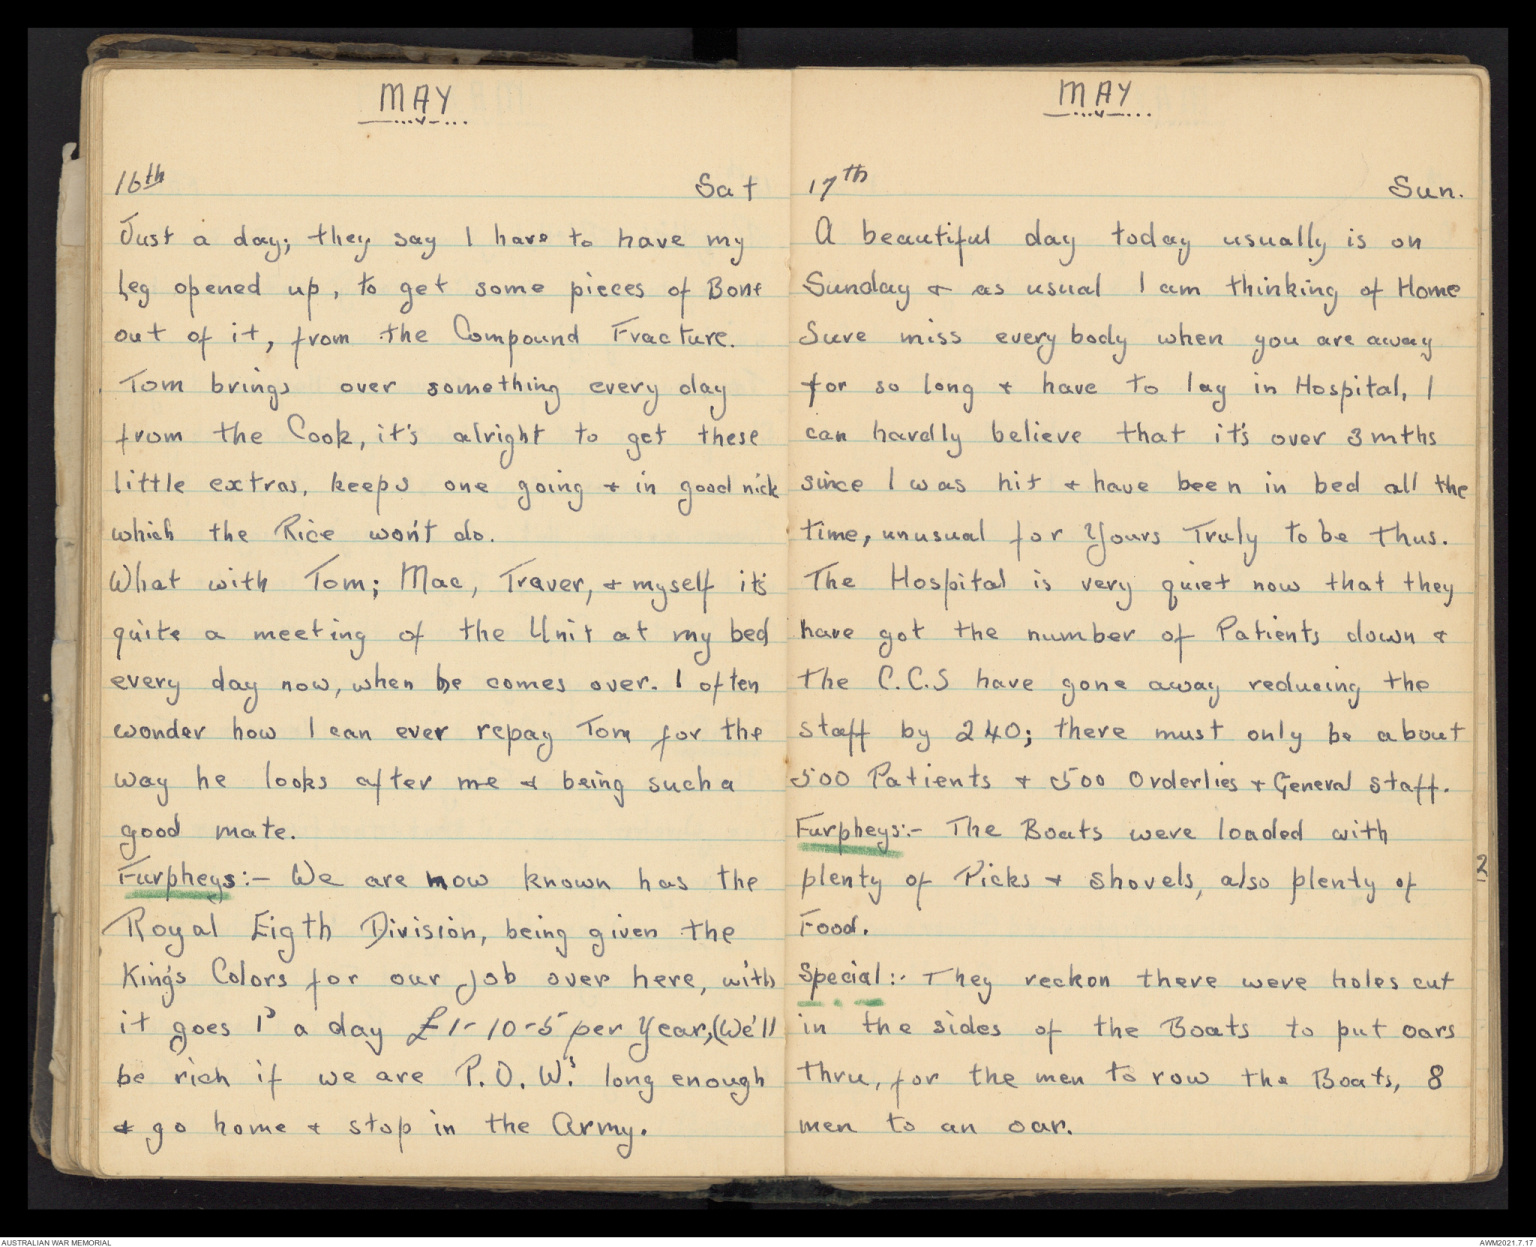 MAY
16th Sat
Just a day; they say I have to have my
Leg opened up, to get some pieces of Bone
out of it, from the Compound Fracture.
Tom brings over something every day
from the Cook, it's alright to get these
little extras, keeps one going & in good nick
which the Rice won't do.
What with Tom; Mac, Traver, & myself it's
quite a meeting of the Unit at my bed
every day now, when he comes over. I often
wonder how I can ever repay Tom for the
way he looks after me & being such a
good mate.
Furpheys:- We are now known has the
Royal Eigth Division, being given the
King's Colors for our job over here, with
it goes 1D a day £1-10-5 per Year,(We'll
be rich if we are P.O.W.'s long enough
& go home & stop in the Army.
MAY
17th Sun.
A beautiful day today usually is on
Sunday & as usual I am thinking of Home
Sure miss every body when you are away
for so long & have to lay in Hospital, I
can hardly believe that it's over 3 mths
since I was hit & have been in bed all the
time, unusual for Yours Truly to be thus.
The Hospital is very quiet now that they
have got the number of Patients down &
the C.C.S have gone away reducing the
staff by 240; there must only be about
500 Patients & 500 Orderlies & General Staff.
Furpheys:- The Boats were loaded with
plenty of Picks & Shovels, also plenty of
Food.
Special:- They reckon there were holes cut
in the sides of the Boats to put oars
thru, for the men to row the Boats, 8
men to an oar.
2
AUSTRALIAN WAR MEMORIAL
AWM2021.7.17